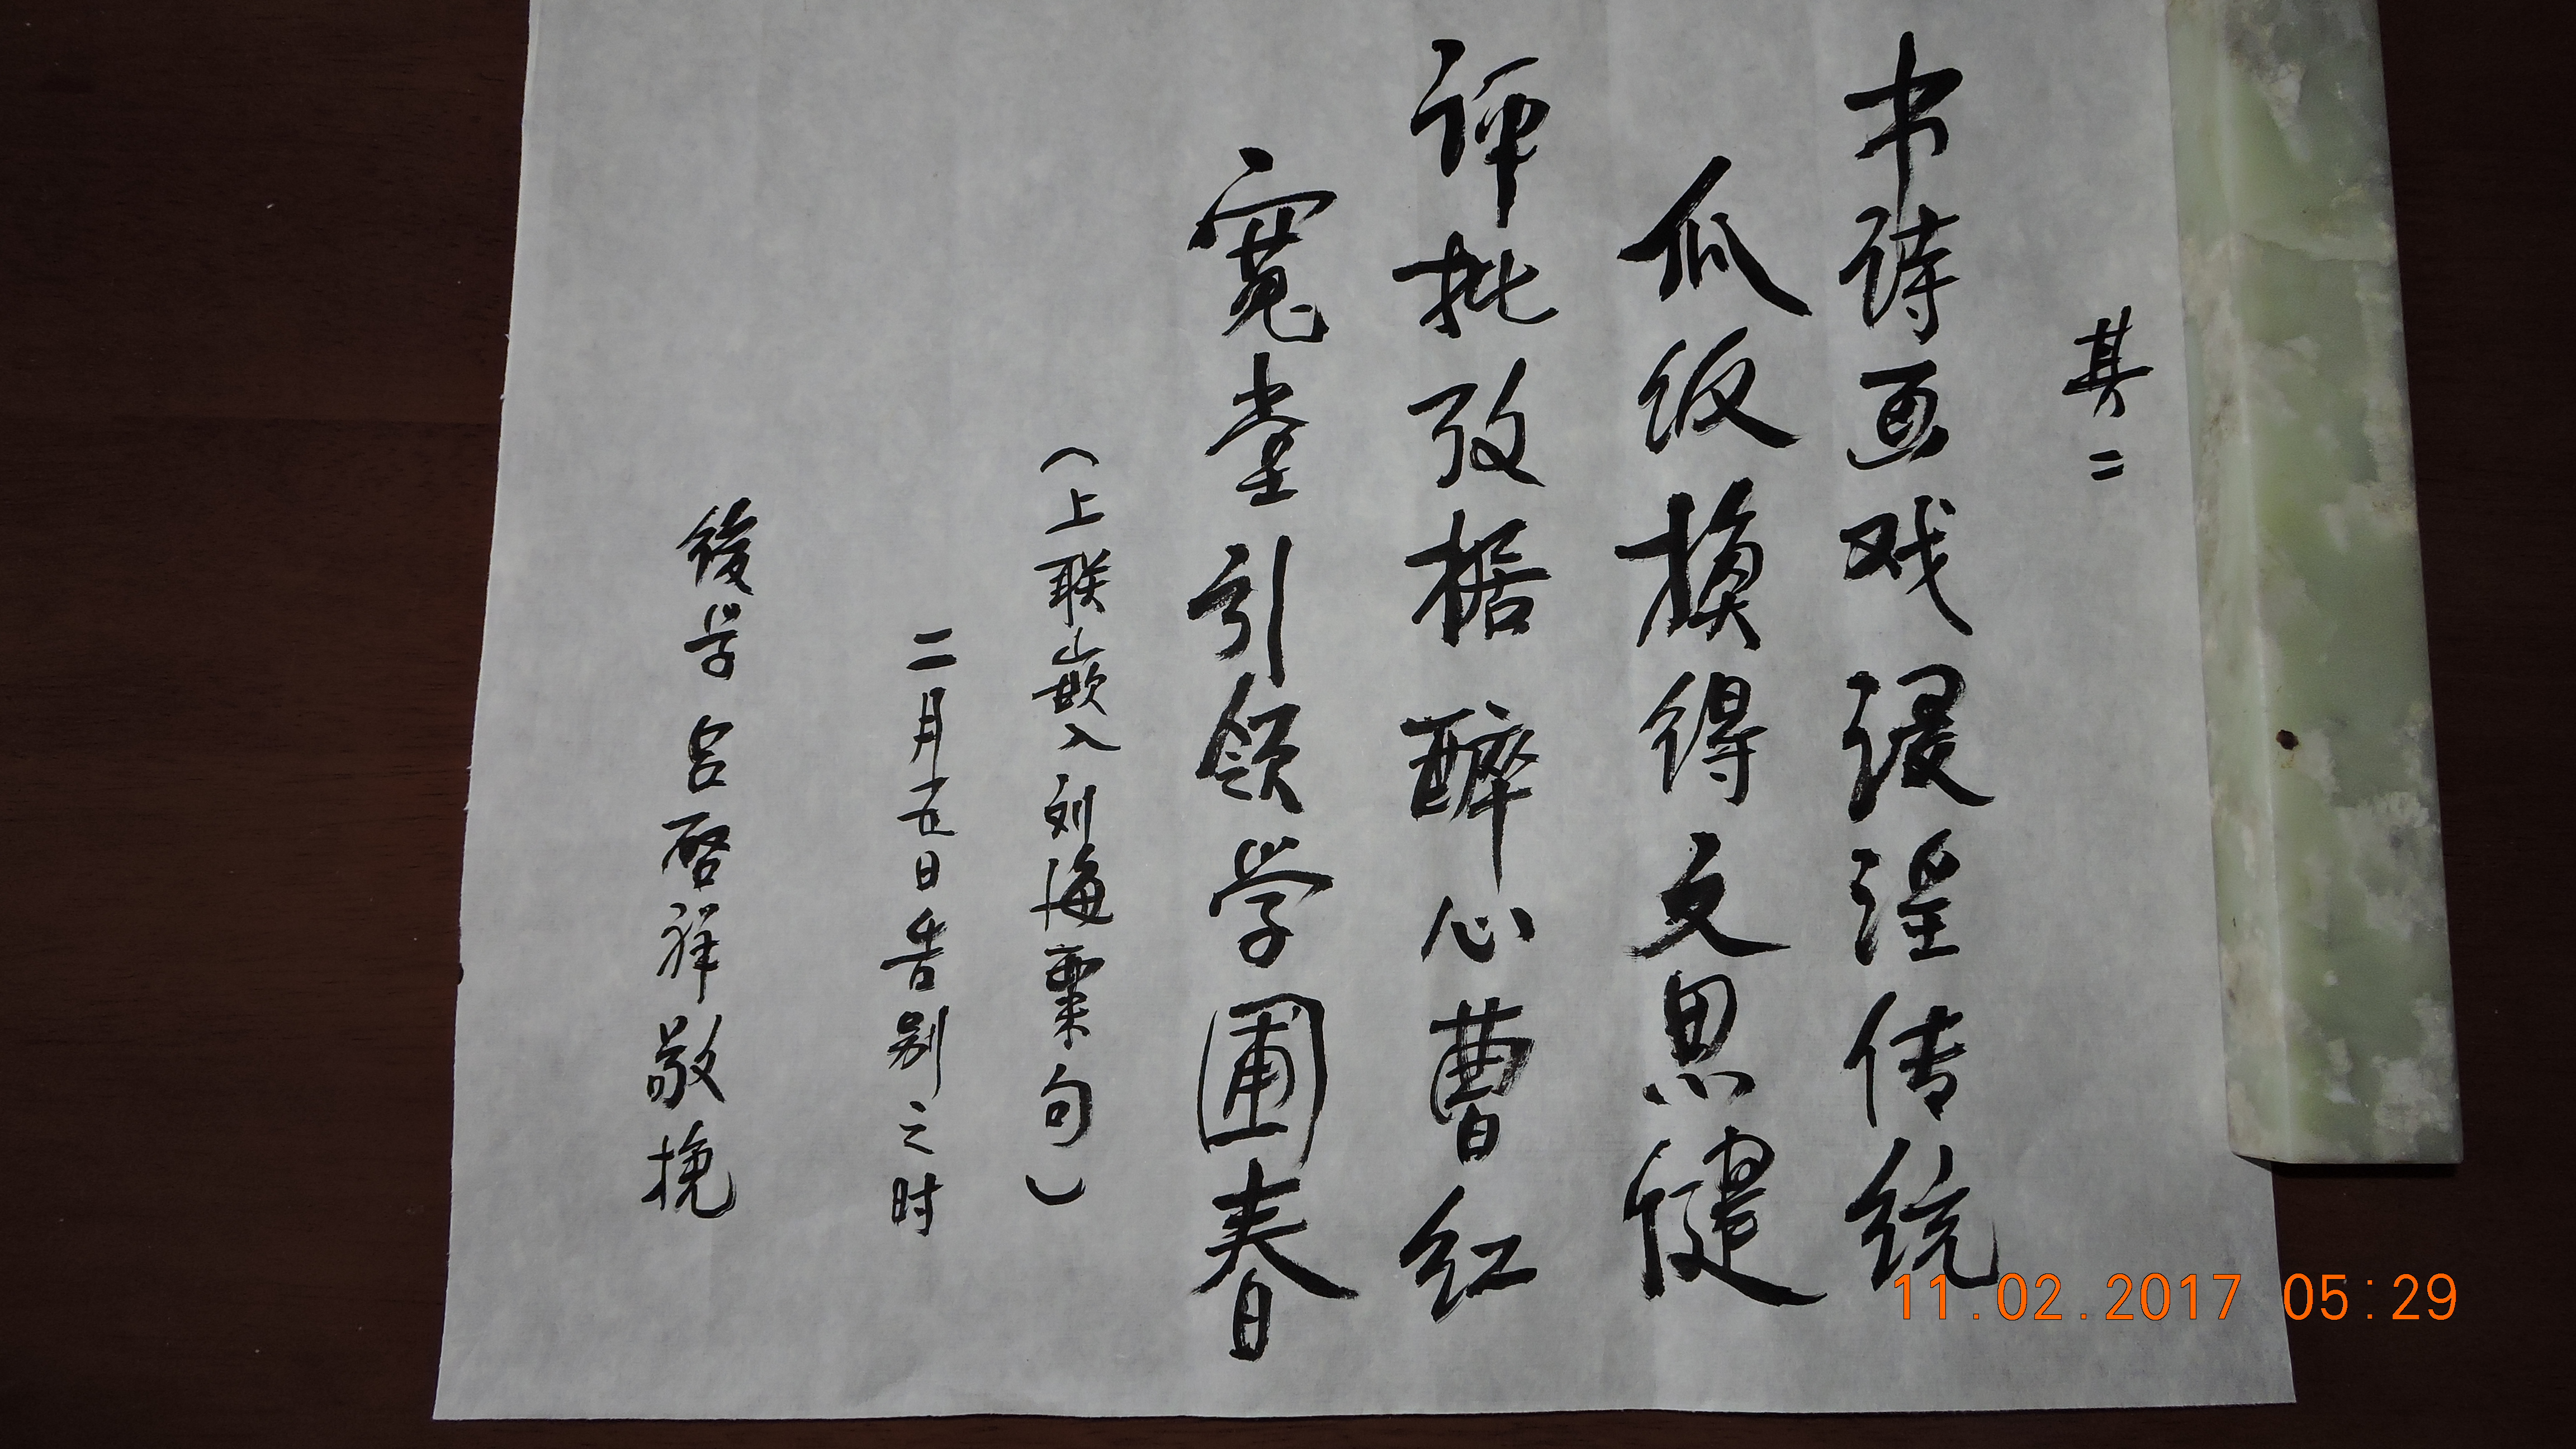 其二
书诗画戏浸淫传统
瓜饭换得文思健
评批考据醉心曹红
宽堂引领学圃春
（上联嵌入刘海粟句）
二月五日告别之时
後学吕启祥敬挽
11.02.2017 05:29